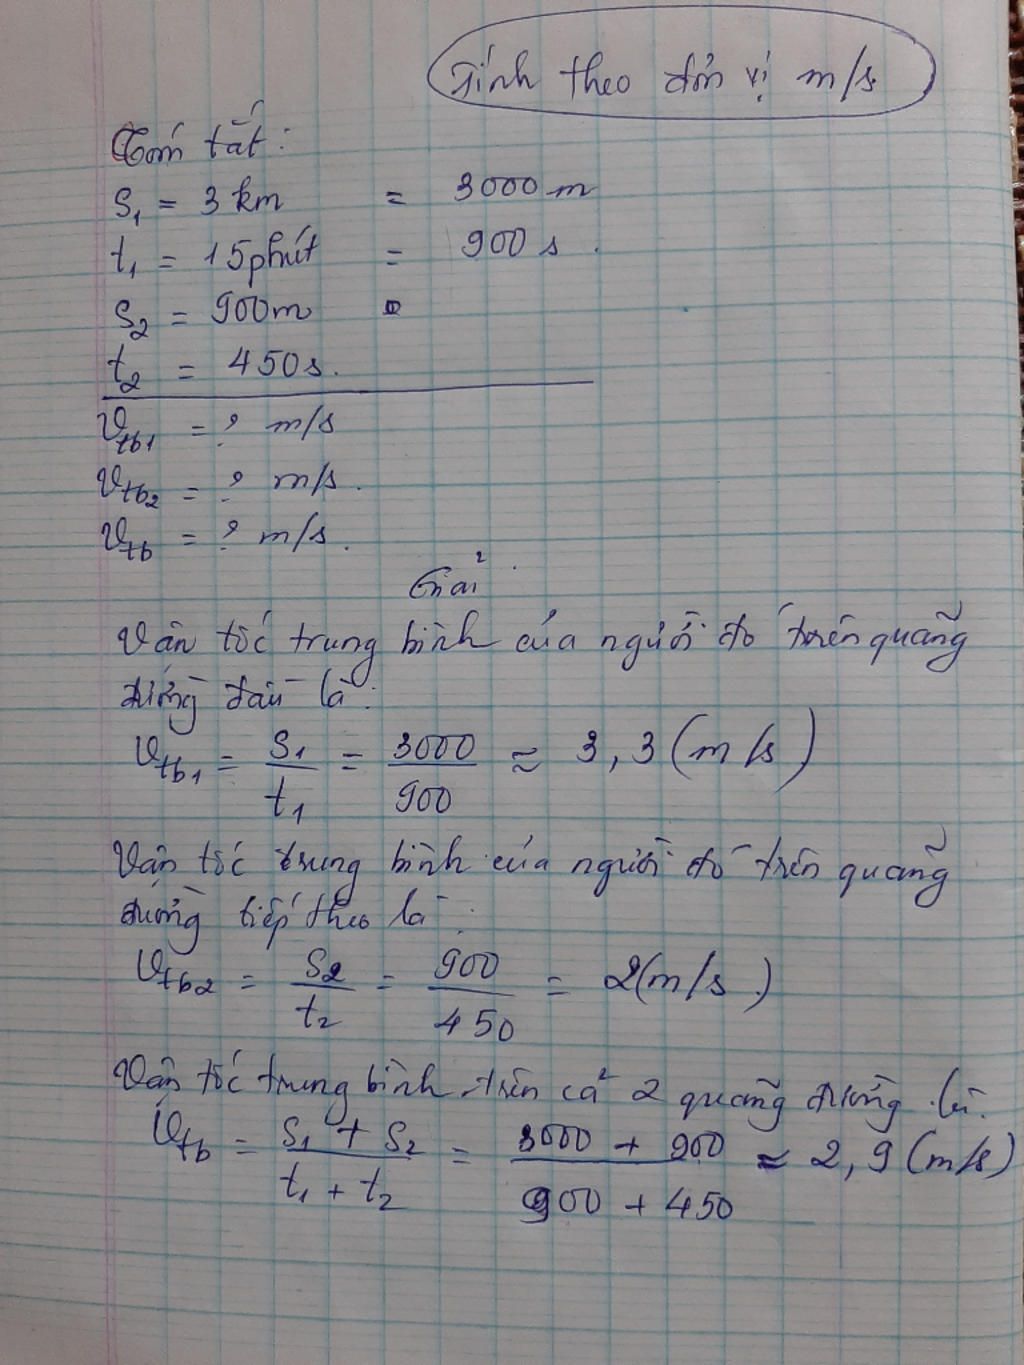 Tính theo đơn vị m/s
Tóm tắt:
S₁ = 3 km = 3000 m
t₁ = 15 phút = 900 s.
S₂ = 900m
t₂ = 450 s.
Vtb1 = ? m/s
Vtb2 = ? m/s.
Vtb = ? m/s.
Giải
Vận tốc trung bình của người đó trên quãng
đường đầu là:
Vtb1 = S₁/t₁ = 3000/900 ≈ 3,3 (m/s)
Vận tốc trung bình của người đó trên quãng
đường tiếp theo là:
Vtb2 = S₂/t₂ = 900/450 = 2(m/s.)
Vận tốc trung bình trên cả 2 quãng đường là.
Vtb = (S₁ + S₂)/(t₁ + t₂) = (3000 + 900)/(900 + 450) ≈ 2,9 (m/s)